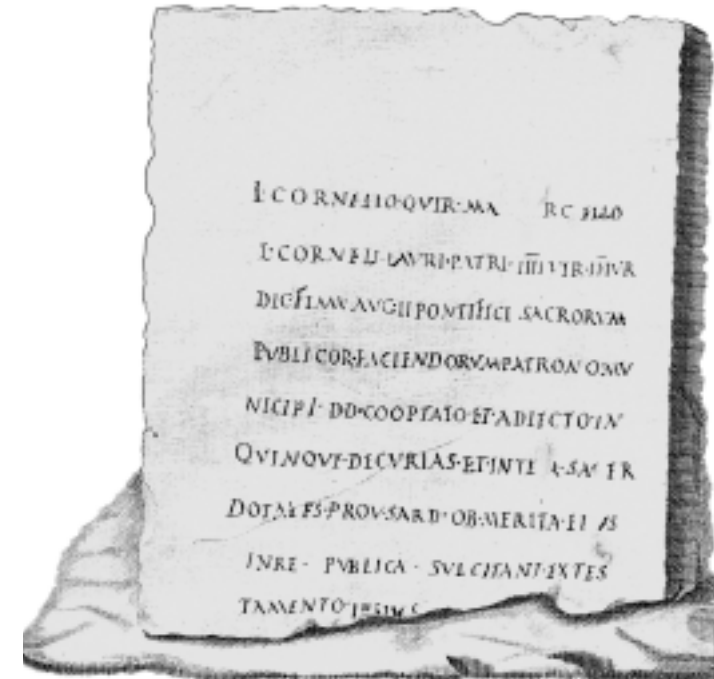 L·CORNELIO·QVIR·MA RCELLO
L·CORNELI·LAVRI·PATRI·IIIIVIR·IIVIR
DIC·FLAM·AVG·II PONTIFICI SACRORVM
PVBLICOR·FACIENDORVM·PATRONO MV
NICIPI·DD·COOPTATO·ET·ADIECTO·IN
QVINQVE·DECVRIAS·ET·INTE R·SACER
DOTALES·PROV·SARD·OB·MERITA·EI VS
INRE· PVBLICA· SVLCITANI·EXTES
TAMENTO·IPSIVS